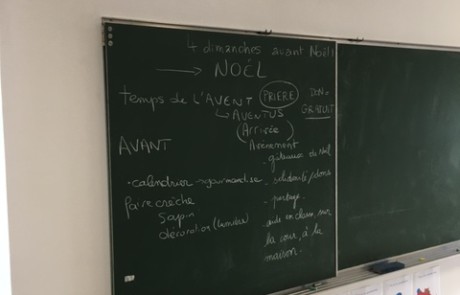 4 dimanches avant Noël
→ NOËL
temps de l'AVENT PRIÈRE DON
GRATUIT
↳ AVENTUS
(Arrivée)
AVANT Avènement
- gâteaux de Noël
• calendrier gourmandise - solidarité / dons
Faire crèche - partage
Sapin - aide en classe, sur
décoration (lumière) la cour, à la
maison.